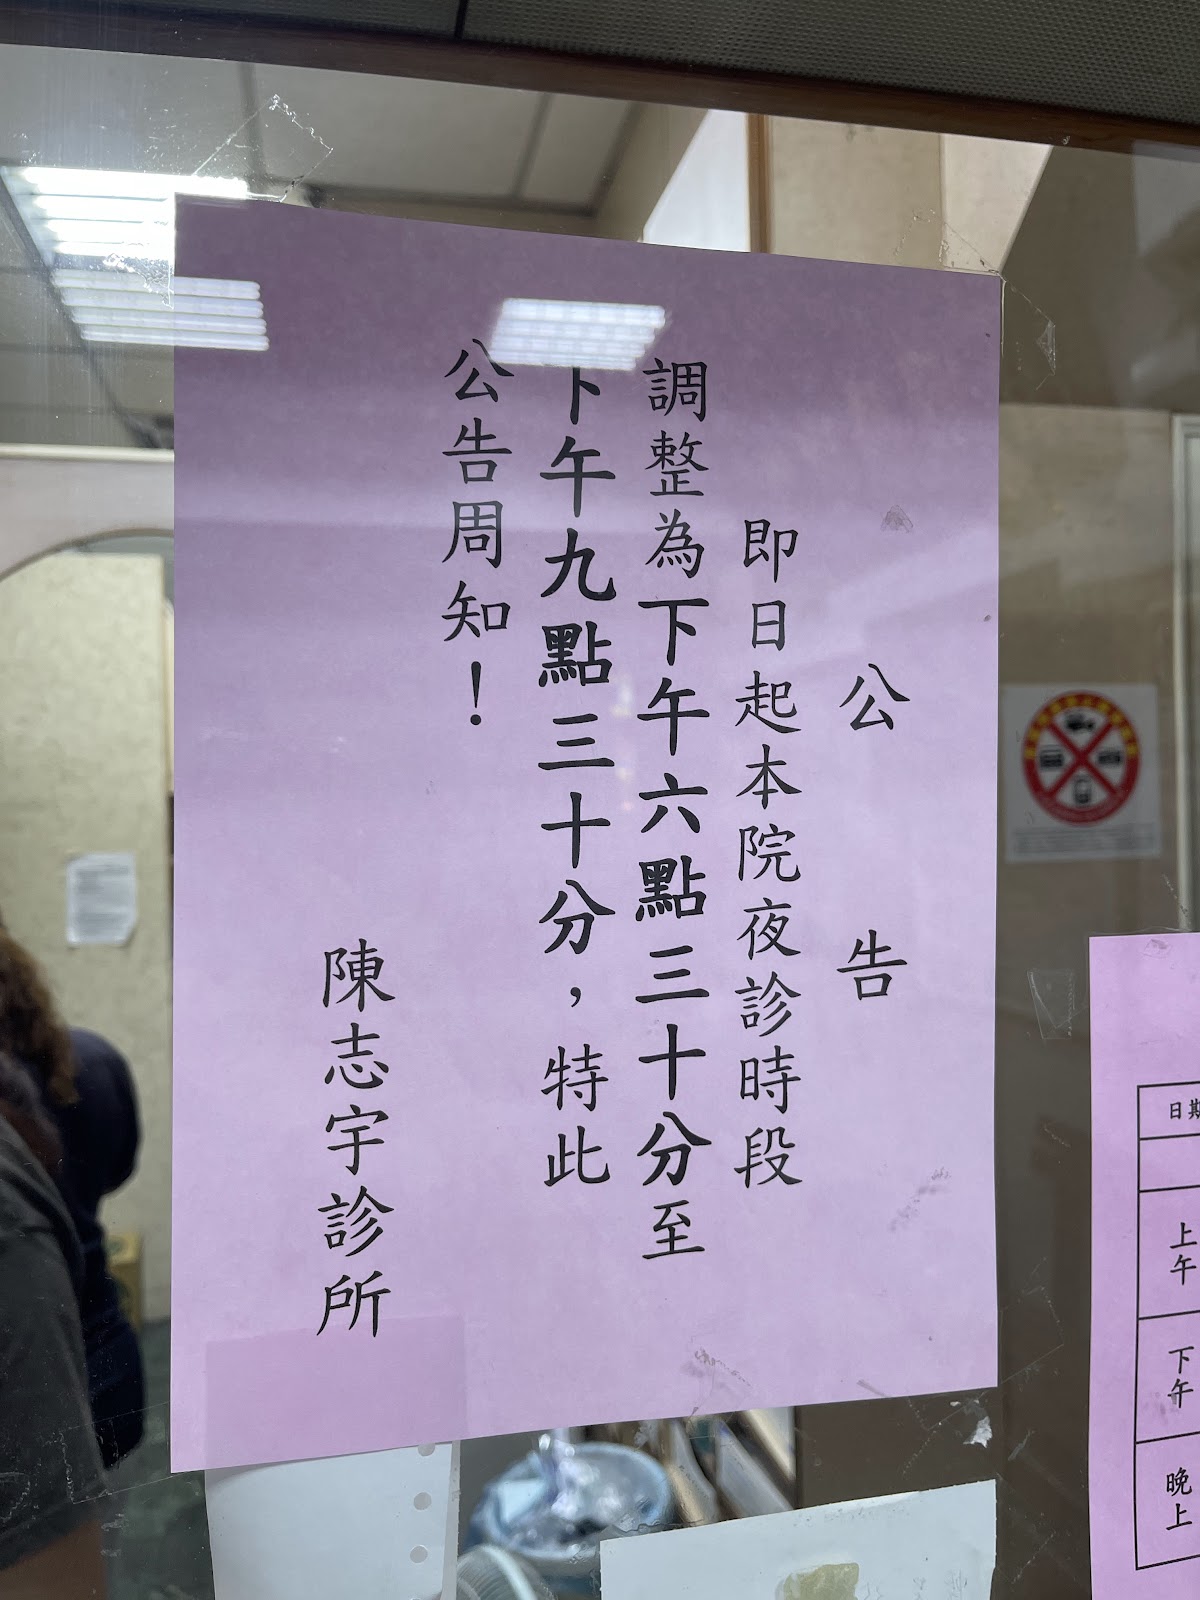 公告
即日起本院夜診時段
調整為下午六點三十分至
下午九點三十分，特此
公告周知！
陳志宇診所
日期
上午
下午
晚上